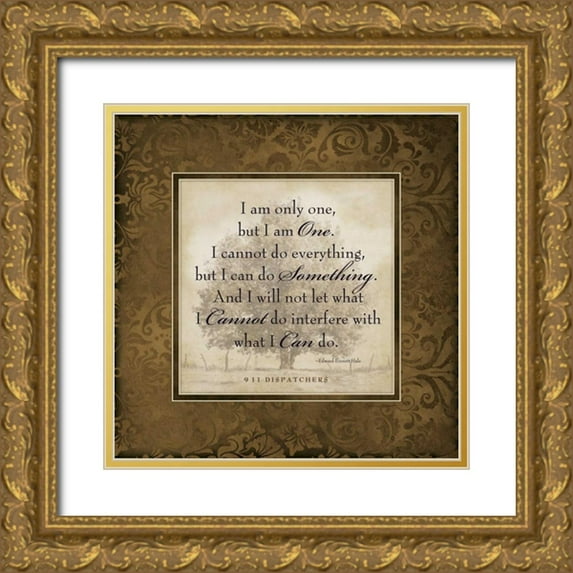 I am only one,
but I am One.
I cannot do everything,
but I can do Something.
And I will not let what
I Cannot do interfere with
what I Can do.
-Edward Everett Hale
911 DISPATCHERS